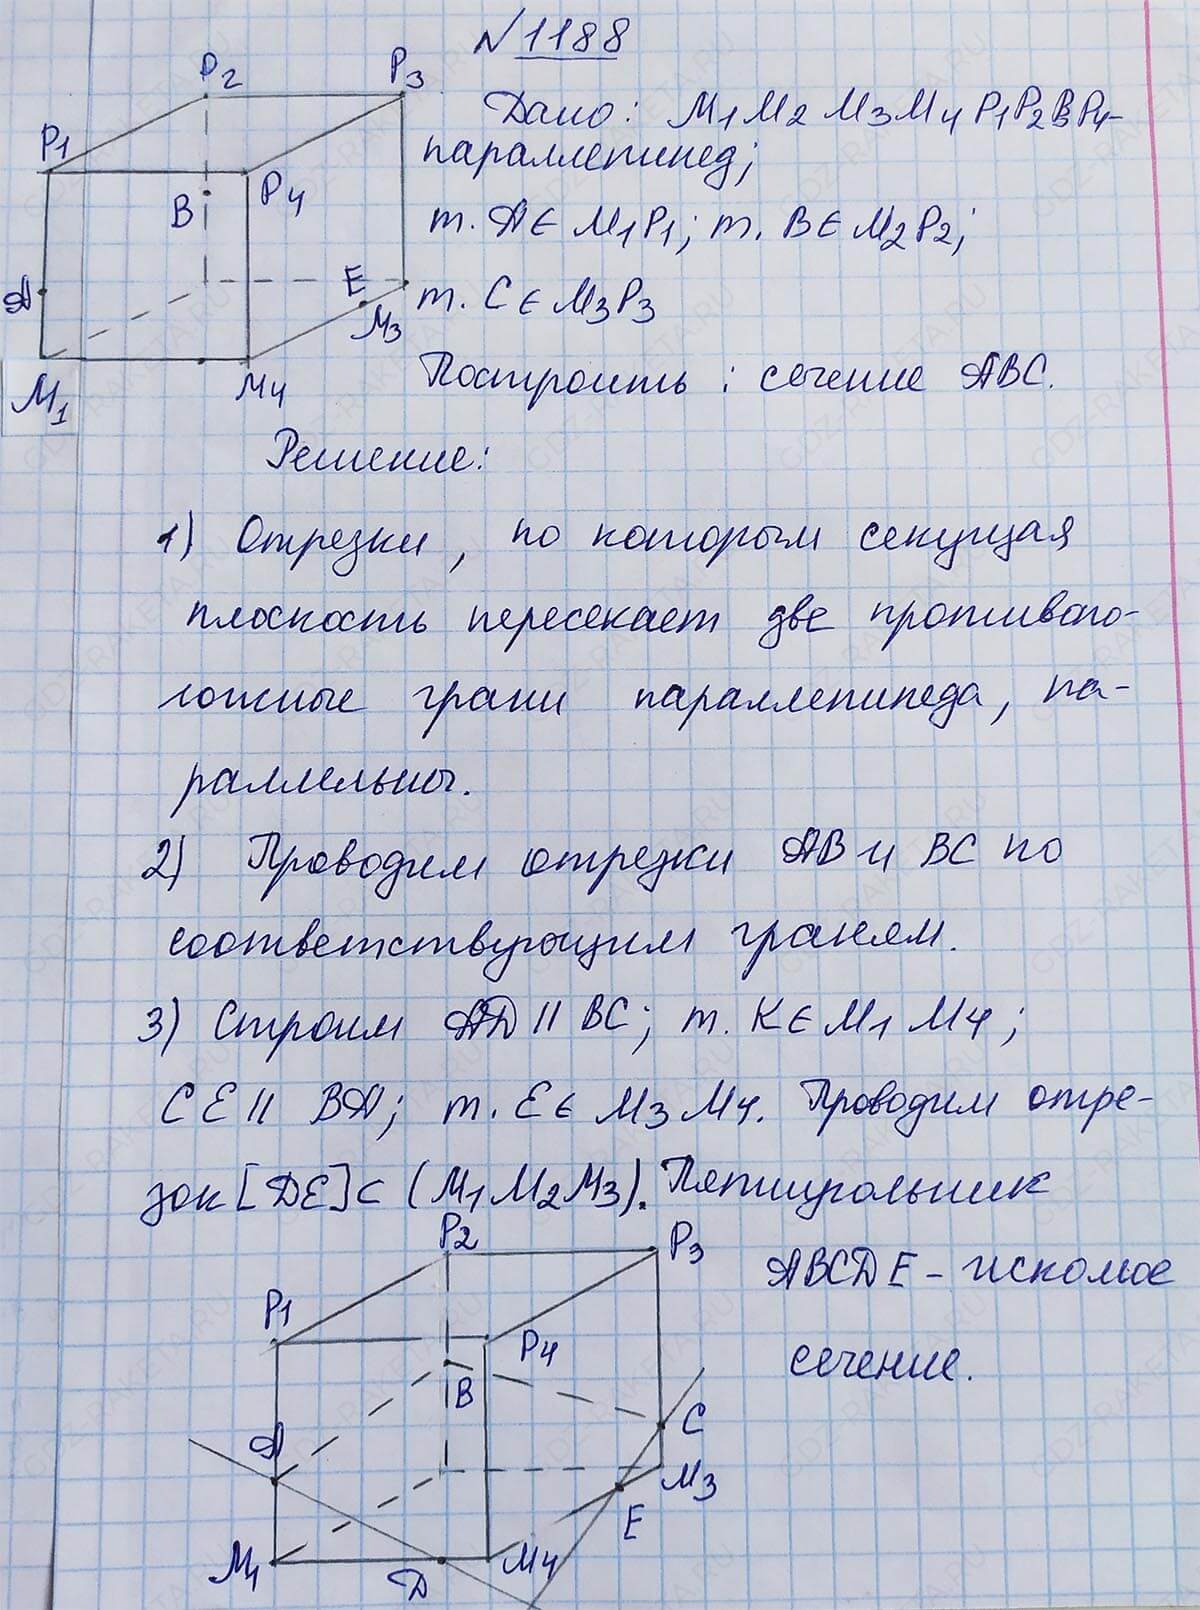 №1188
P2
P3
P1
P4
B
A
E
M3
M1
M4
Дано: M1M2M3M4P1P2P3P4-
параллепипед;
т. A∈M1P1; т. B∈M2P2;
т. C∈M3P3
Построить: сечение ABC.
Решение:
1) Отрезки, по которым секущая
плоскость пересекает две противопо-
ложные грани параллепипеда, па-
раллельны.
2) Проводим отрезки AB и BC по
соответствующим граням.
3) Строим AD || BC; т. K∈M1M4;
CE || BA; т. E∈M3M4. Проводим отре-
зок [DE]⊂(M1M2M3). Пятиугольник
ABCDE - искомое
сечение.
P2
P3
P1
P4
B
A
C
M3
E
M1
D
M4